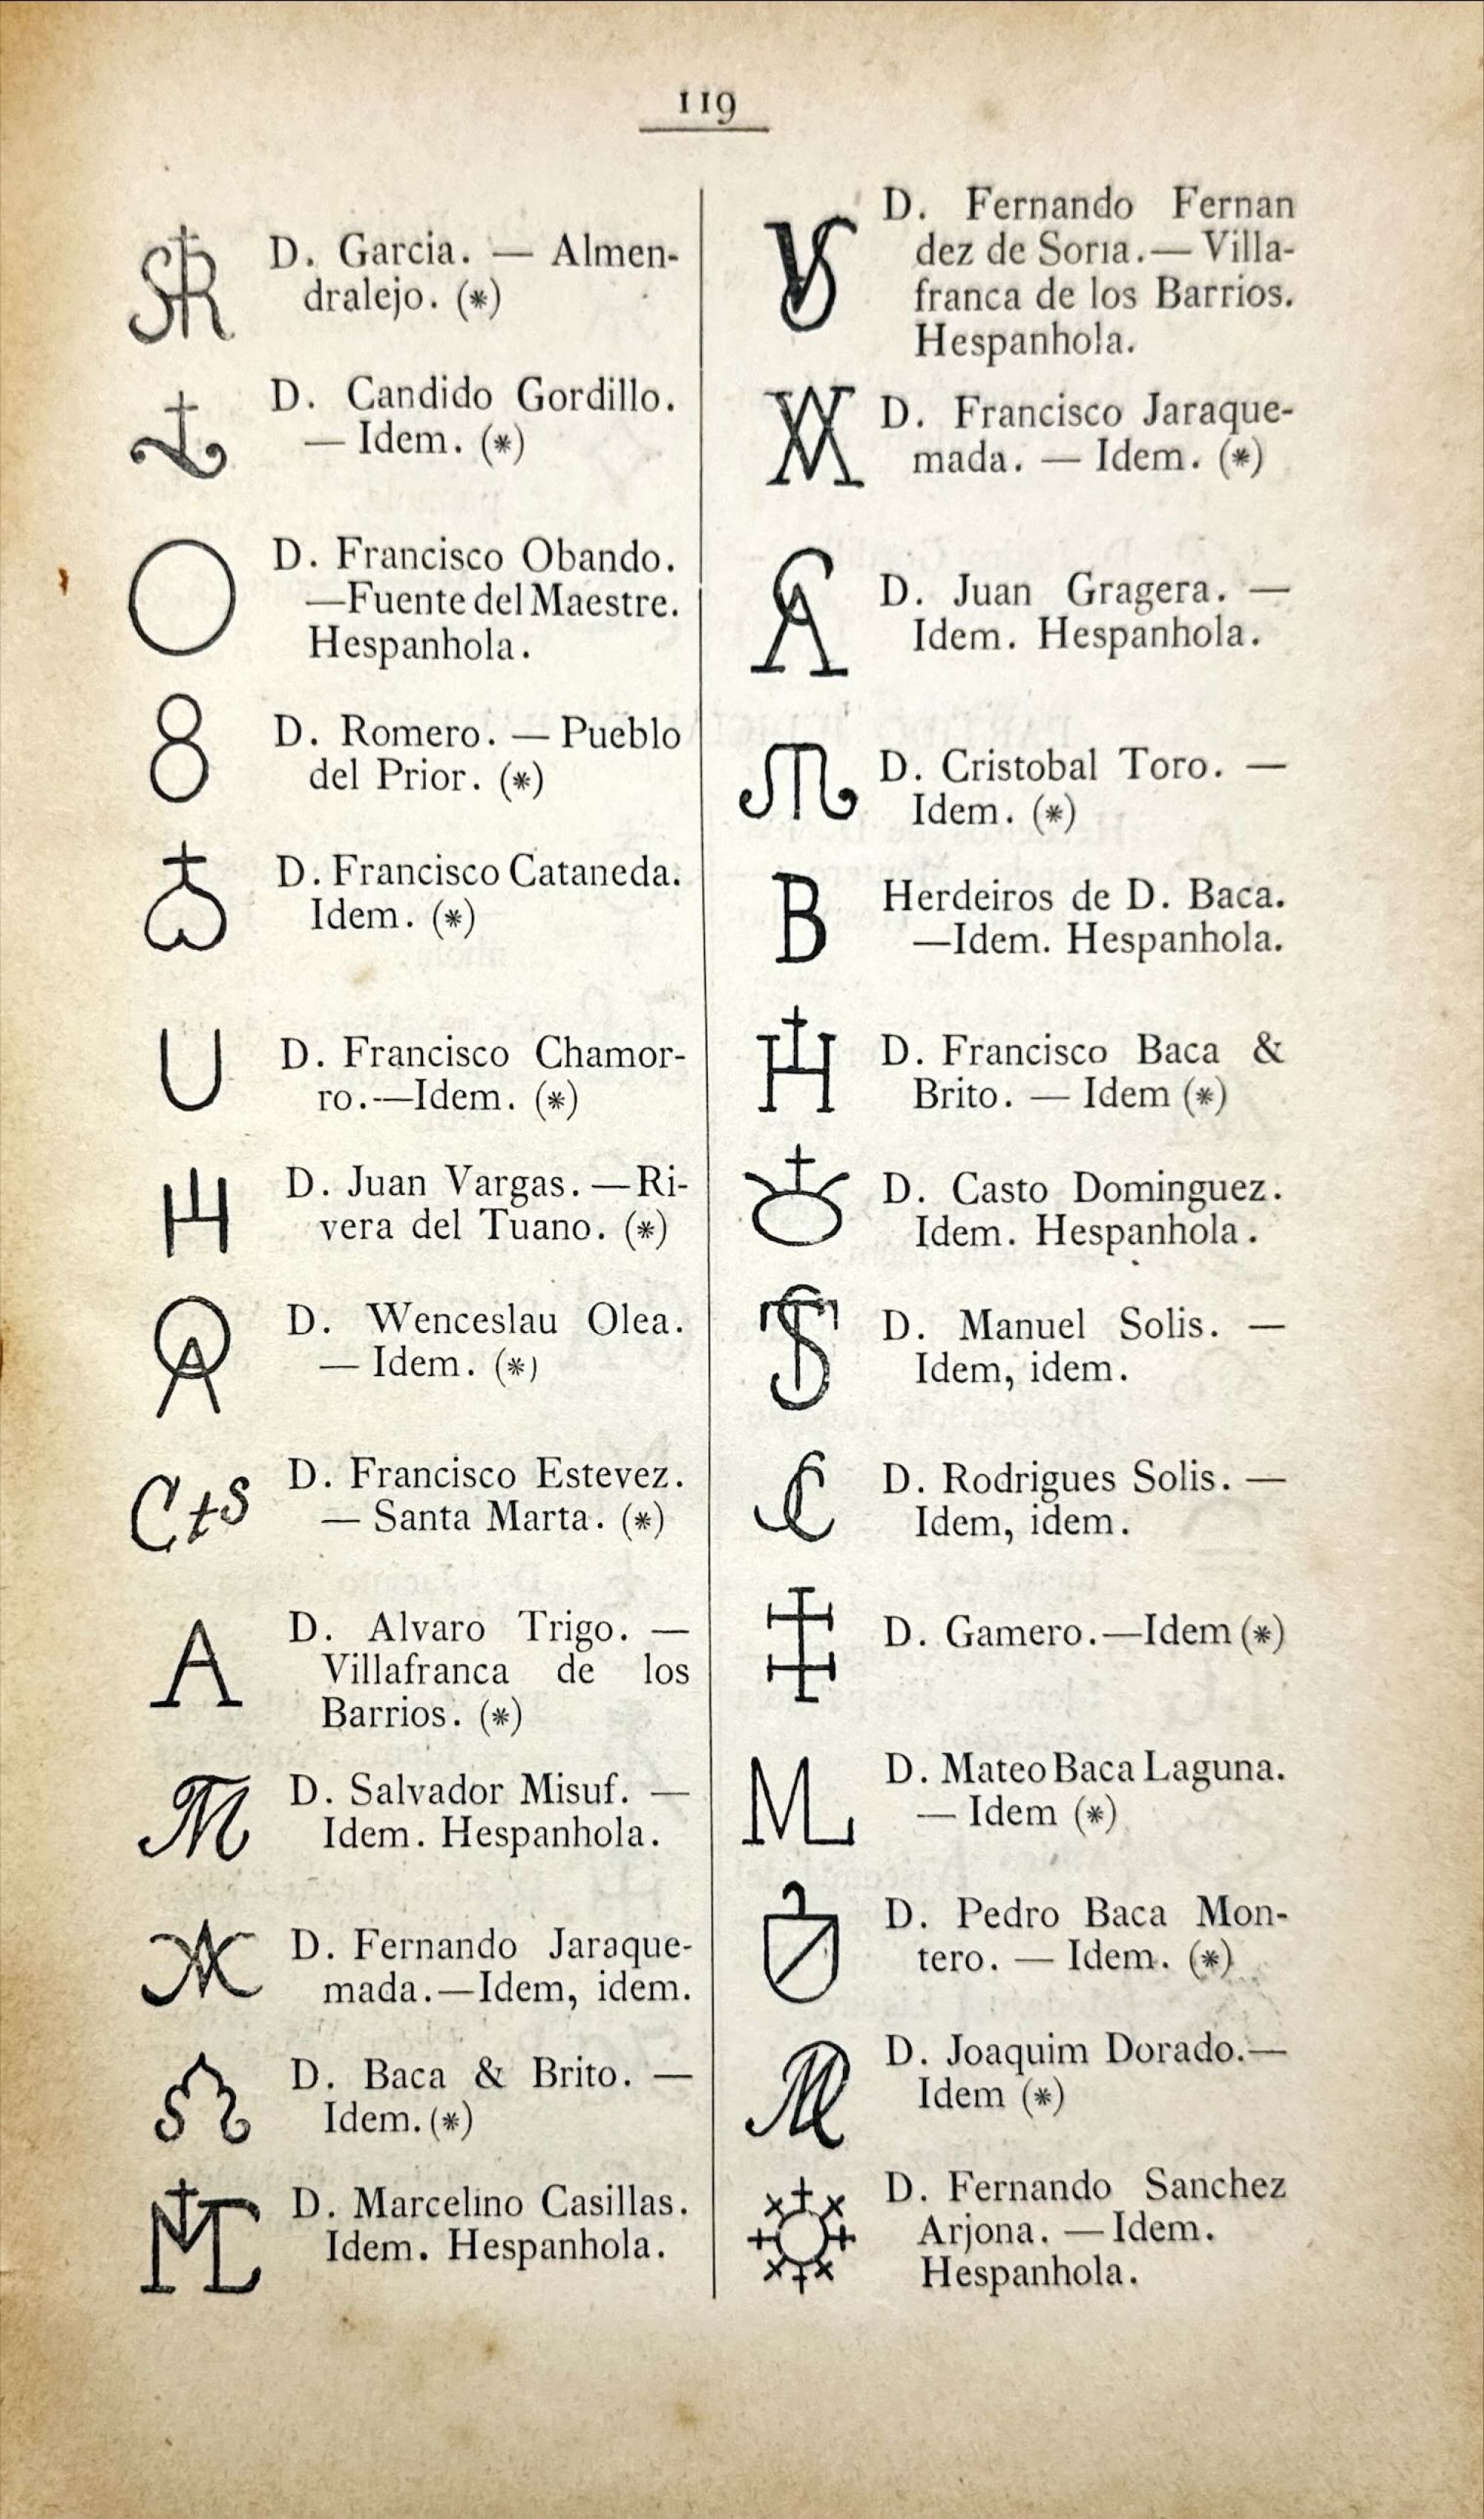 119
D. Garcia. — Almen-
dralejo. (*)
D. Candido Gordillo.
— Idem. (*)
D. Francisco Obando.
—Fuente del Maestre.
Hespanhola.
D. Romero. — Pueblo
del Prior. (*)
D. Francisco Cataneda.
Idem. (*)
D. Francisco Chamor-
ro.—Idem. (*)
D. Juan Vargas. —Ri-
vera del Tuano. (*)
D. Wenceslau Olea.
— Idem. (*)
D. Francisco Estevez.
— Santa Marta. (*)
D. Alvaro Trigo. —
Villafranca de los
Barrios. (*)
D. Salvador Misuf. —
Idem. Hespanhola.
D. Fernando Jaraque-
mada.—Idem, idem.
D. Baca & Brito. —
Idem. (*)
D. Marcelino Casillas.
Idem. Hespanhola.
D. Fernando Fernan
dez de Soria.— Villa-
franca de los Barrios.
Hespanhola.
D. Francisco Jaraque-
mada. — Idem. (*)
D. Juan Gragera. —
Idem. Hespanhola.
D. Cristobal Toro. —
Idem. (*)
B
Herdeiros de D. Baca.
—Idem. Hespanhola.
D. Francisco Baca &
Brito. — Idem (*)
D. Casto Dominguez.
Idem. Hespanhola.
D. Manuel Solis. —
Idem, idem.
D. Rodrigues Solis. —
Idem, idem.
D. Gamero.—Idem (*)
D. Mateo Baca Laguna.
— Idem (*)
D. Pedro Baca Mon-
tero. — Idem. (*)
D. Joaquim Dorado.—
Idem (*)
D. Fernando Sanchez
Arjona. — Idem.
Hespanhola.